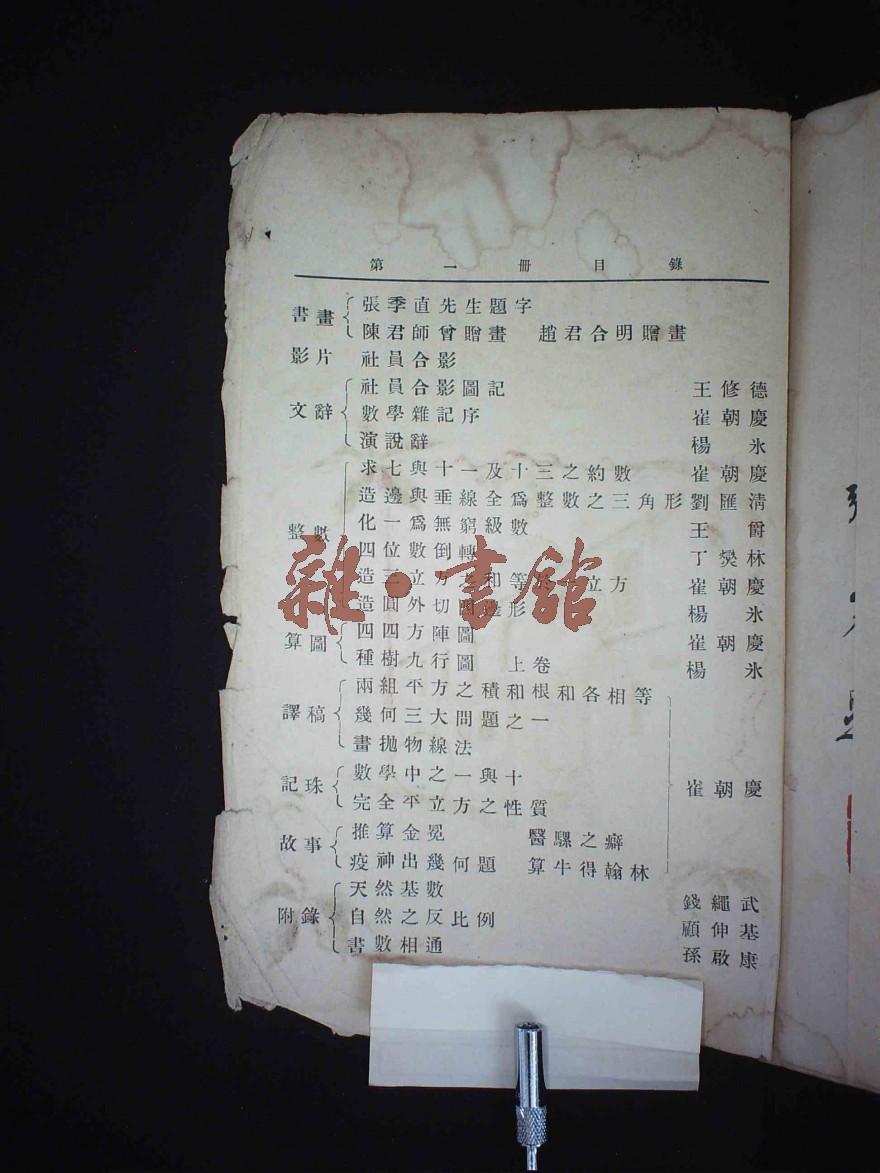 第一冊目錄
書畫 張季直先生題字
陳君師曾贈畫 趙君合明贈畫
影片 社員合影
文辭 社員合影圖記 王修德
數學雜記序 崔朝慶
演說辭 楊冰
整數 求七與十一及十三之約數 崔朝慶
造邊與垂線全為整數之三角形 劉匯清
化一為無窮級數 王爵
四位數倒轉 丁燓林
造三立方之和等於一立方 崔朝慶
造圓外切四邊形 楊冰
算圖 四四方陣圖 崔朝慶
種樹九行圖 上卷 楊冰
譯稿 兩組平方之積和根和各相等
幾何三大問題之一
畫拋物線法
記珠 數學中之一與十 崔朝慶
完全平立方之性質
故事 推算金冕 醫騾之癖
疫神出幾何題 算牛得翰林
附錄 天然基數 錢繩武
自然之反比例 顧仲基
書數相通 孫啟康
雜·書館